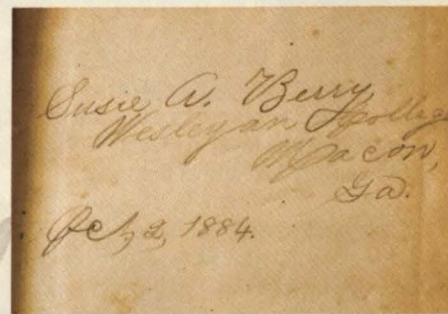 Susie A. Berry
Wesleyan College
Macon,
Ga.
Oct, 2, 1884.